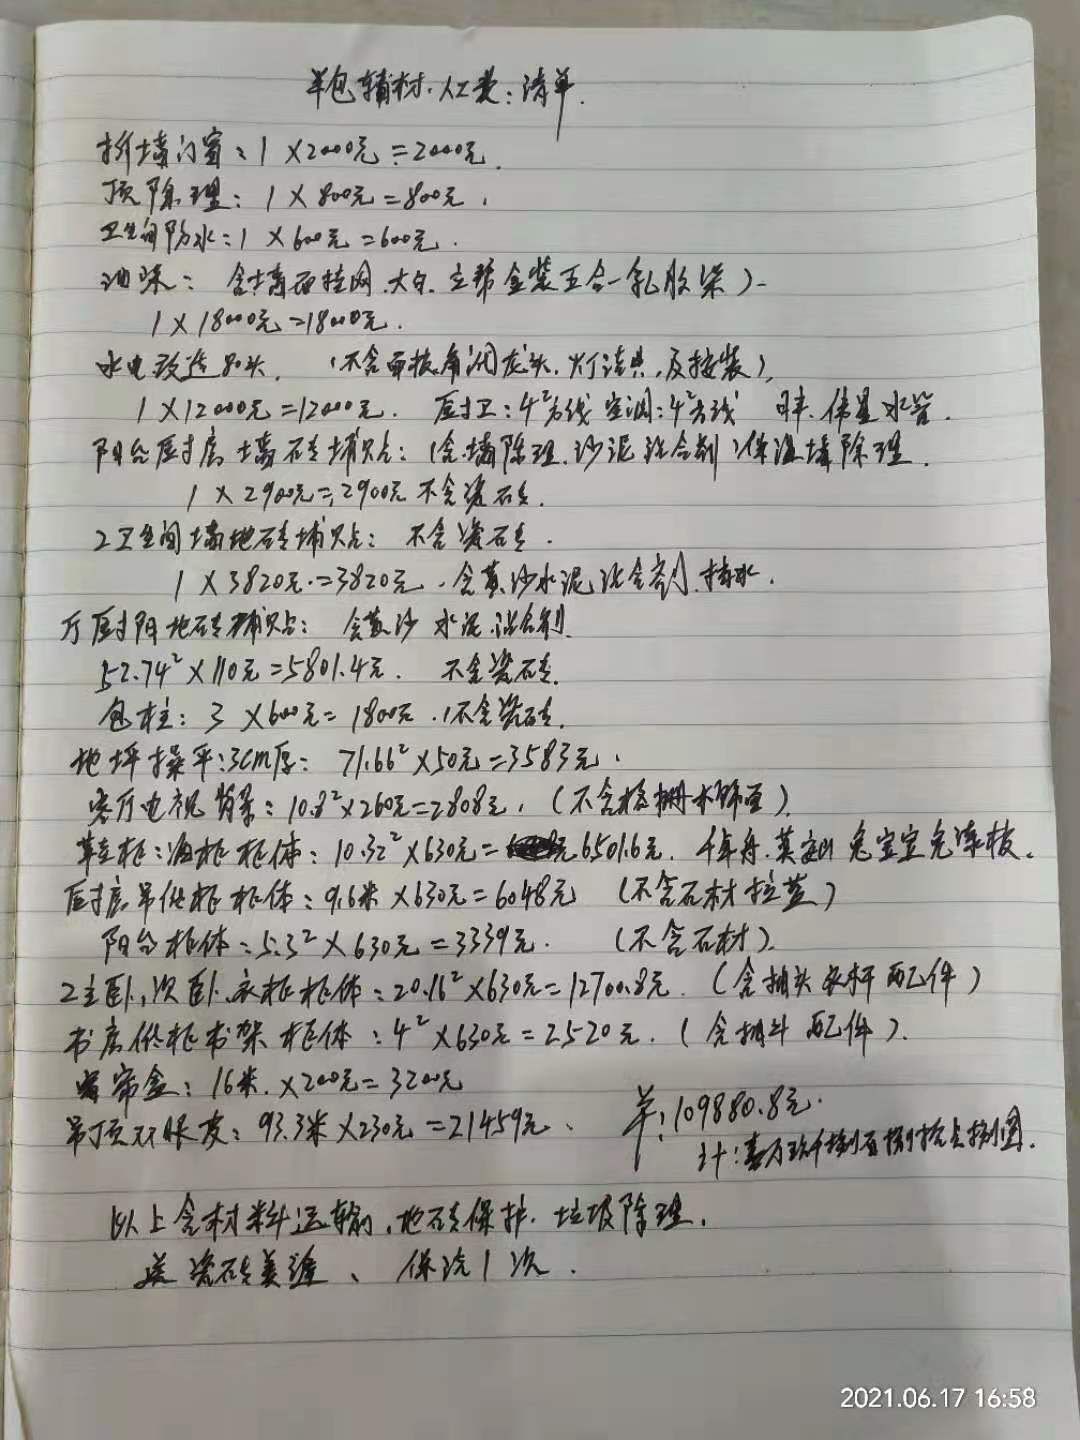 半包辅材.人工费:清单.
拆墙门窗:1×2000元=2000元.
顶除理:1×800元=800元.
卫生间防水:1×600元=600元.
油柒:含墙面挂网.大白.立帮金装五合一乳胶柒)
1×18000元=18000元.
水电改造 (不含面板角阀龙头.灯洁具.及按装)
1×12000元=12000元. 厨卫:4²方线 空调:4²方线 日丰.伟星水管.
阳台厨房墙砖埔贴:(含.墙除理.沙泥沾合剂)保温墙除理.
1×2900元=2900元 不含瓷砖.
2卫生间墙地砖埔贴: 不含瓷砖.
1×3820元=3820元.含黄沙水泥沾合剂.
厅厨阳地砖埔贴: 含黄沙水泥.沾合剂.
52.74²×110元=5801.4元. 不含瓷砖.
包柱:3×600元=1800元.(不含瓷砖.
地坪操平:3cm厚: 71.66²×50元=3583元.
客厅电视背景:10.8²×260元=2808元.(不含格栅木饰面)
柜:酒柜柜体:10.32²×630元=6501.6元. 千年舟.莫干山 兔宝宝免漆板.
厨房吊低柜柜体:9.6米×630元=6048元 (不含石材拉蓝)
阳台柜体:5.3²×630元=3339元. (不含石材)
2主卧,次卧.衣柜柜体:20.16²×630元=12700.8元.(含抽头衣杆配件)
书房低柜书架柜体:4²×630元=2520元.(含抽斗配件).
窗帘盒:16米.×200元=3200元
吊顶双眼皮:93.3米×230元=21459元.
半:109880.8元.
计:壹万玖仟捌百捌拾点捌圆.
以上含材料运输,地砖保护.垃圾除理.
送瓷砖美缝、保洁1次.
2021.06.17 16:58